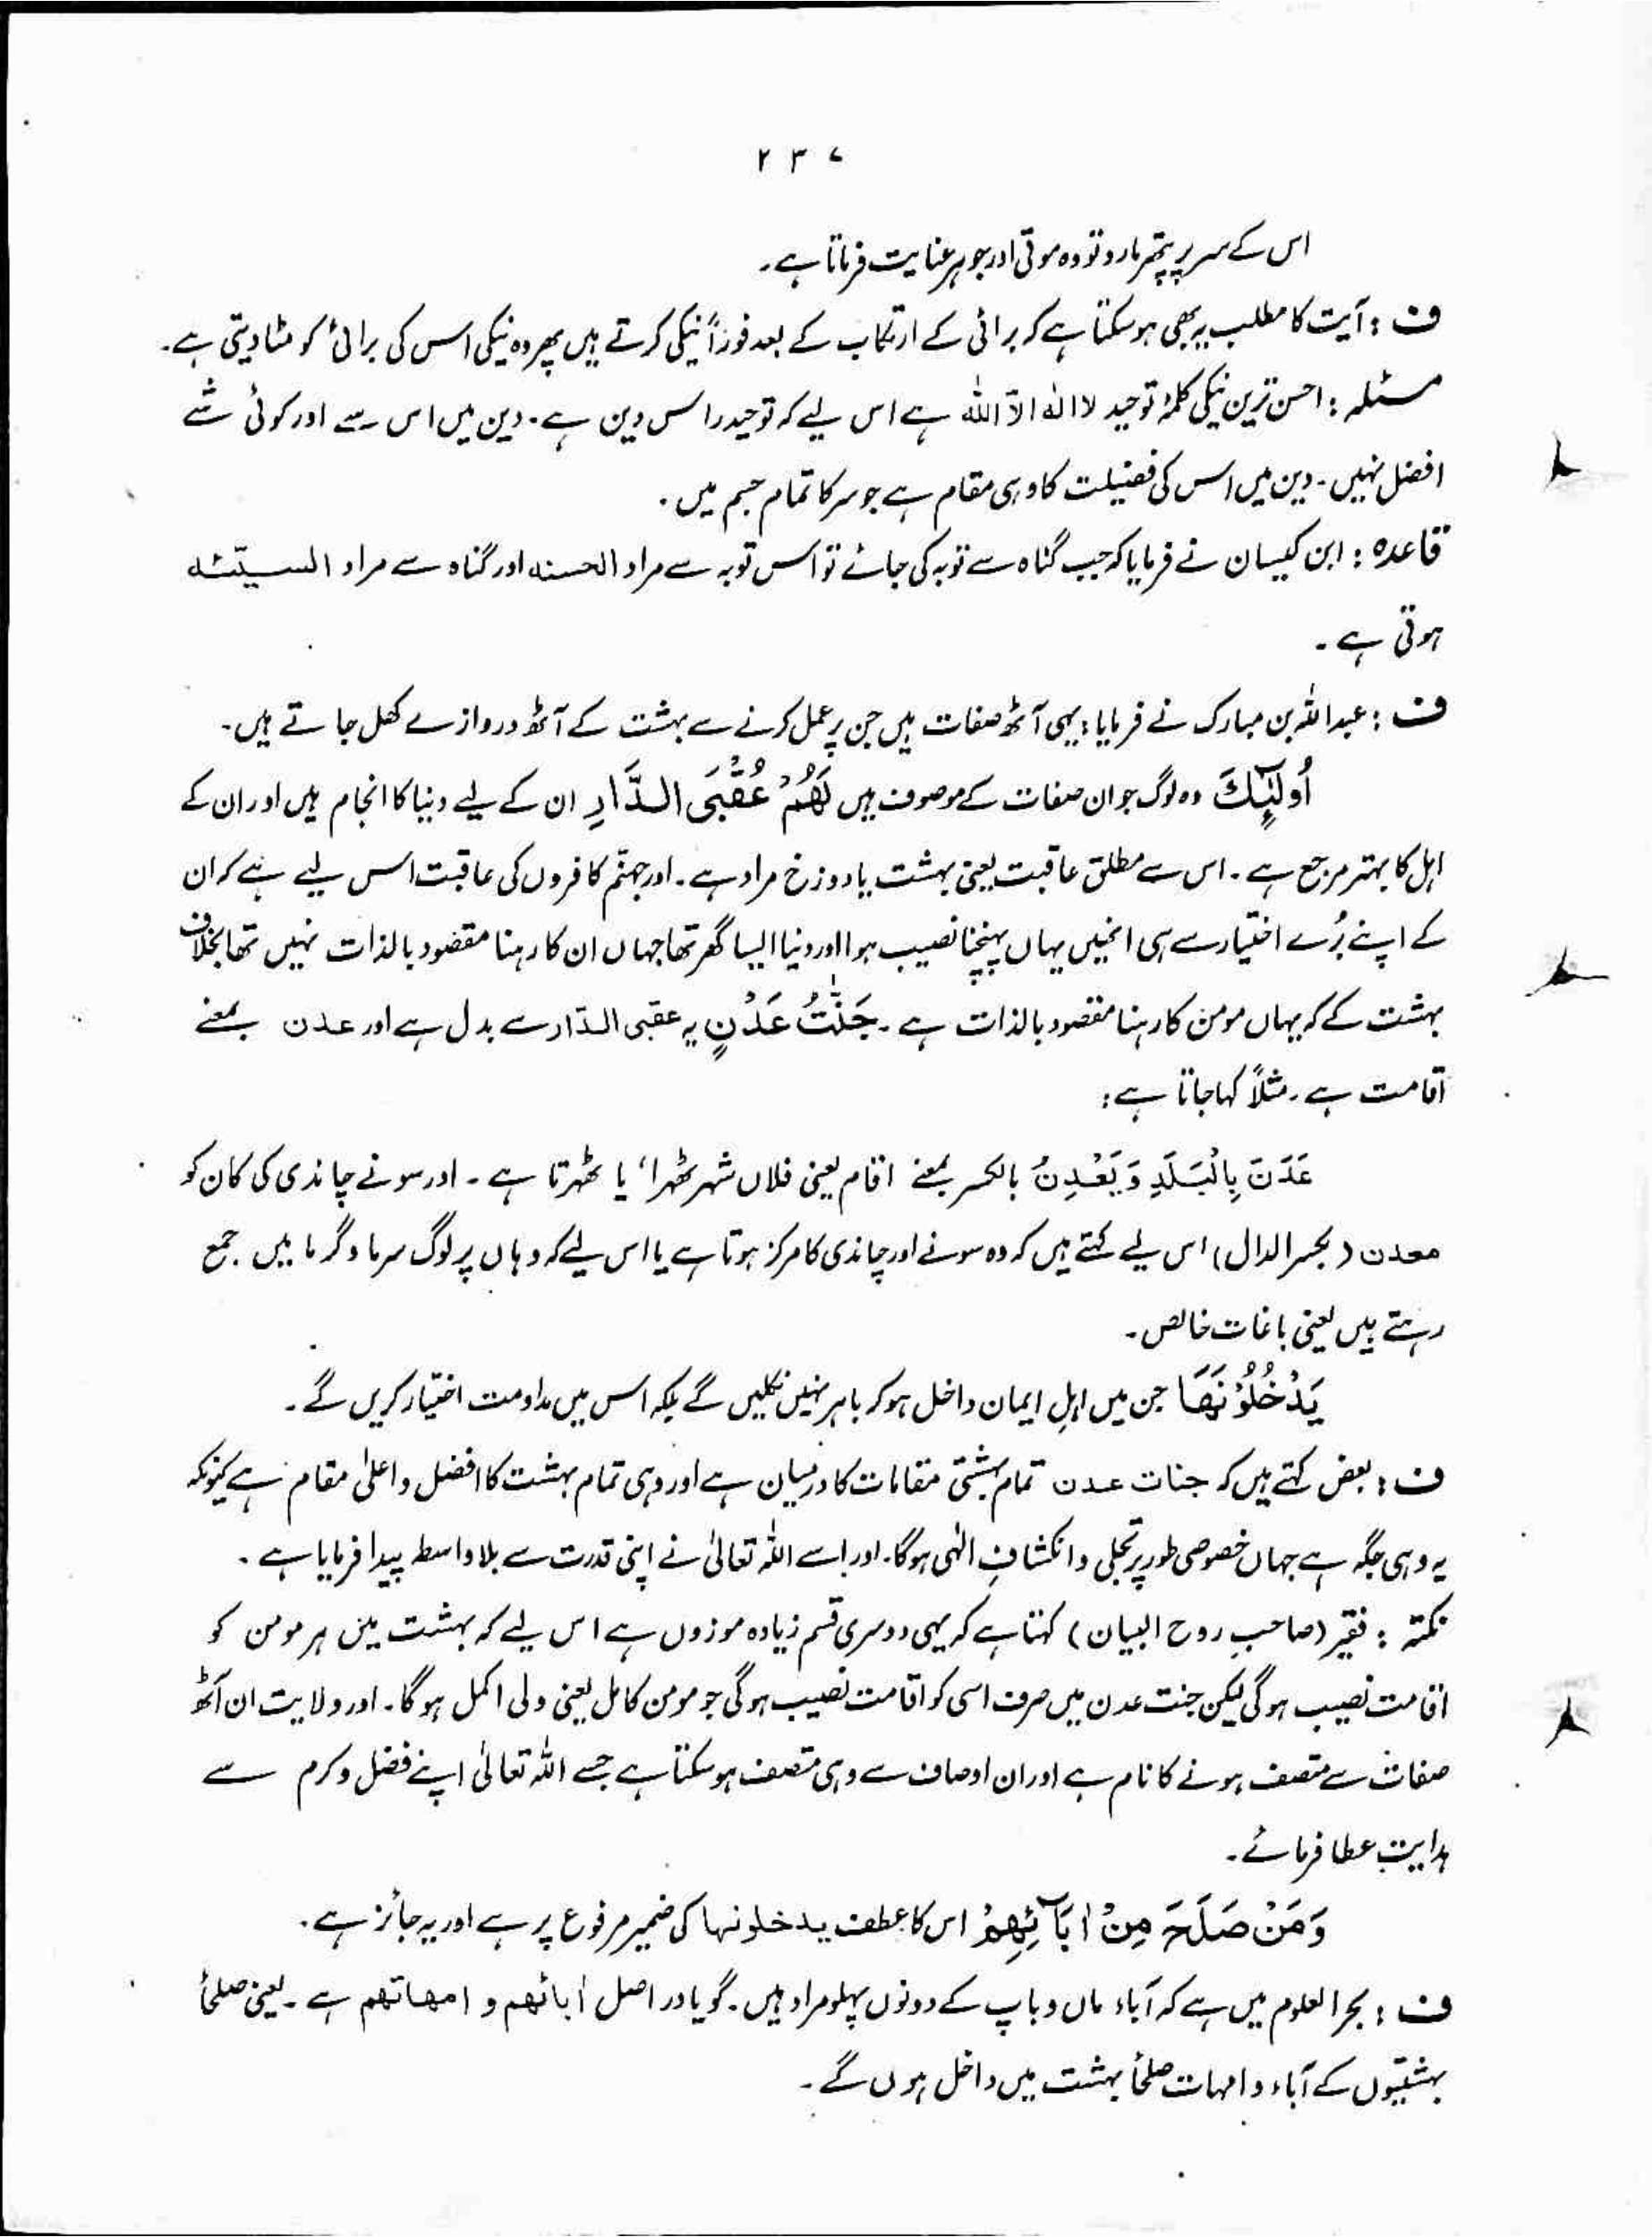 ۲۳۷
اس کے سر پر پتھر مارو تو وہ موتی اور جوہر عنایت فرماتا ہے۔
ف : آیت کا مطلب یہ بھی ہو سکتا ہے کہ برائی کے ارتکاب کے بعد فوراً نیکی کرتے ہیں پھر وہ نیکی اس کی برائی کو مٹا دیتی ہے۔
مسئلہ : احسن ترین نیکی کلمۂ توحید لا الٰہ الّا اللہ ہے اس لیے کہ توحید راس دین ہے۔ دین میں اس سے اور کوئی شے
افضل نہیں۔ دین میں اس کی فضیلت کا وہی مقام ہے جو سر کا تمام جسم میں۔
قاعدہ : ابن کیسان نے فرمایا کہ جب گناہ سے توبہ کی جائے تو اس توبہ سے مراد الحسنہ اور گناہ سے مراد السیّئہ
ہوتی ہے۔
ف : عبداللہ بن مبارک نے فرمایا : یہی آٹھ صفات ہیں جن پر عمل کرنے سے بہشت کے آٹھ دروازے کھل جاتے ہیں۔
اُولٰٓئِکَ وہ لوگ جو ان صفات کے موصوف ہیں لَھُمْ عُقْبَی الدَّارِ ان کے لیے دنیا کا انجام ہیں اور ان کے
اہل کا بہتر مرجع ہے۔ اس سے مطلق عاقبت یعنی بہشت یا دوزخ مراد ہے۔ اور جہنّم کافروں کی عاقبت اس لیے ہے کہ ان
کے اپنے بُرے اختیار سے ہی انھیں یہاں پہنچنا نصیب ہوا اور دنیا ایسا گھر تھا جہاں ان کا رہنا مقصود بالذات نہیں تھا بخلاف
بہشت کے کہ یہاں مومن کا رہنا مقصود بالذات ہے۔ جَنّٰتُ عَدْنٍ یہ عقبی الدّار سے بدل ہے اور عدن بمعنے
اقامت ہے۔ مثلاً کہا جاتا ہے :
عَدَنَ بِالْبَلَدِ وَیَعْدِنُ بالکسر بمعنے اقام یعنی فلاں شہر ٹھہرا، یا ٹھہرتا ہے۔ اور سونے چاندی کی کان کو
معدن (بکسر الدال) اس لیے کہتے ہیں کہ وہ سونے اور چاندی کا مرکز ہوتا ہے یا اس لیے کہ وہاں پر لوگ سرما و گرما میں جمع
رہتے ہیں یعنی باغات خالص۔
یَدْخُلُوْنَھَا جن میں اہلِ ایمان داخل ہو کر باہر نہیں نکلیں گے بلکہ اس میں مداومت اختیار کریں گے۔
ف : بعض کہتے ہیں کہ جنات عدن تمام بہشتی مقامات کا درمیان ہے اور وہی تمام بہشت کا افضل و اعلیٰ مقام ہے کیونکہ
یہ وہی جگہ ہے جہاں خصوصی طور پر تجلی و انکشافِ الٰہی ہوگا۔ اور اسے اللہ تعالیٰ نے اپنی قدرت سے بلاواسطہ پیدا فرمایا ہے۔
نکتہ : فقیر (صاحبِ روح البیان) کہتا ہے کہ یہی دوسری قسم زیادہ موزوں ہے اس لیے کہ بہشت میں ہر مومن کو
اقامت نصیب ہوگی لیکن جنت عدن میں صرف اسی کو اقامت نصیب ہوگی جو مومن کامل یعنی ولی اکمل ہوگا۔ اور ولایت ان آٹھ
صفات سے متصف ہونے کا نام ہے اور ان اوصاف سے وہی متصف ہو سکتا ہے جسے اللہ تعالیٰ اپنے فضل و کرم سے
ہدایت عطا فرمائے۔
وَمَنْ صَلَحَ مِنْ اٰبَآئِھِمْ اس کا عطف یدخلونہا کی ضمیر مرفوع پر ہے اور یہ جائز ہے۔
ف : بحر العلوم میں ہے کہ آباء ماں و باپ کے دونوں پہلو مراد ہیں۔ گویا دراصل اٰبائھم و امھاتھم ہے۔ یعنی صلحاً
بہشتیوں کے آباء و امہات صلحاً بہشت میں داخل ہوں گے۔